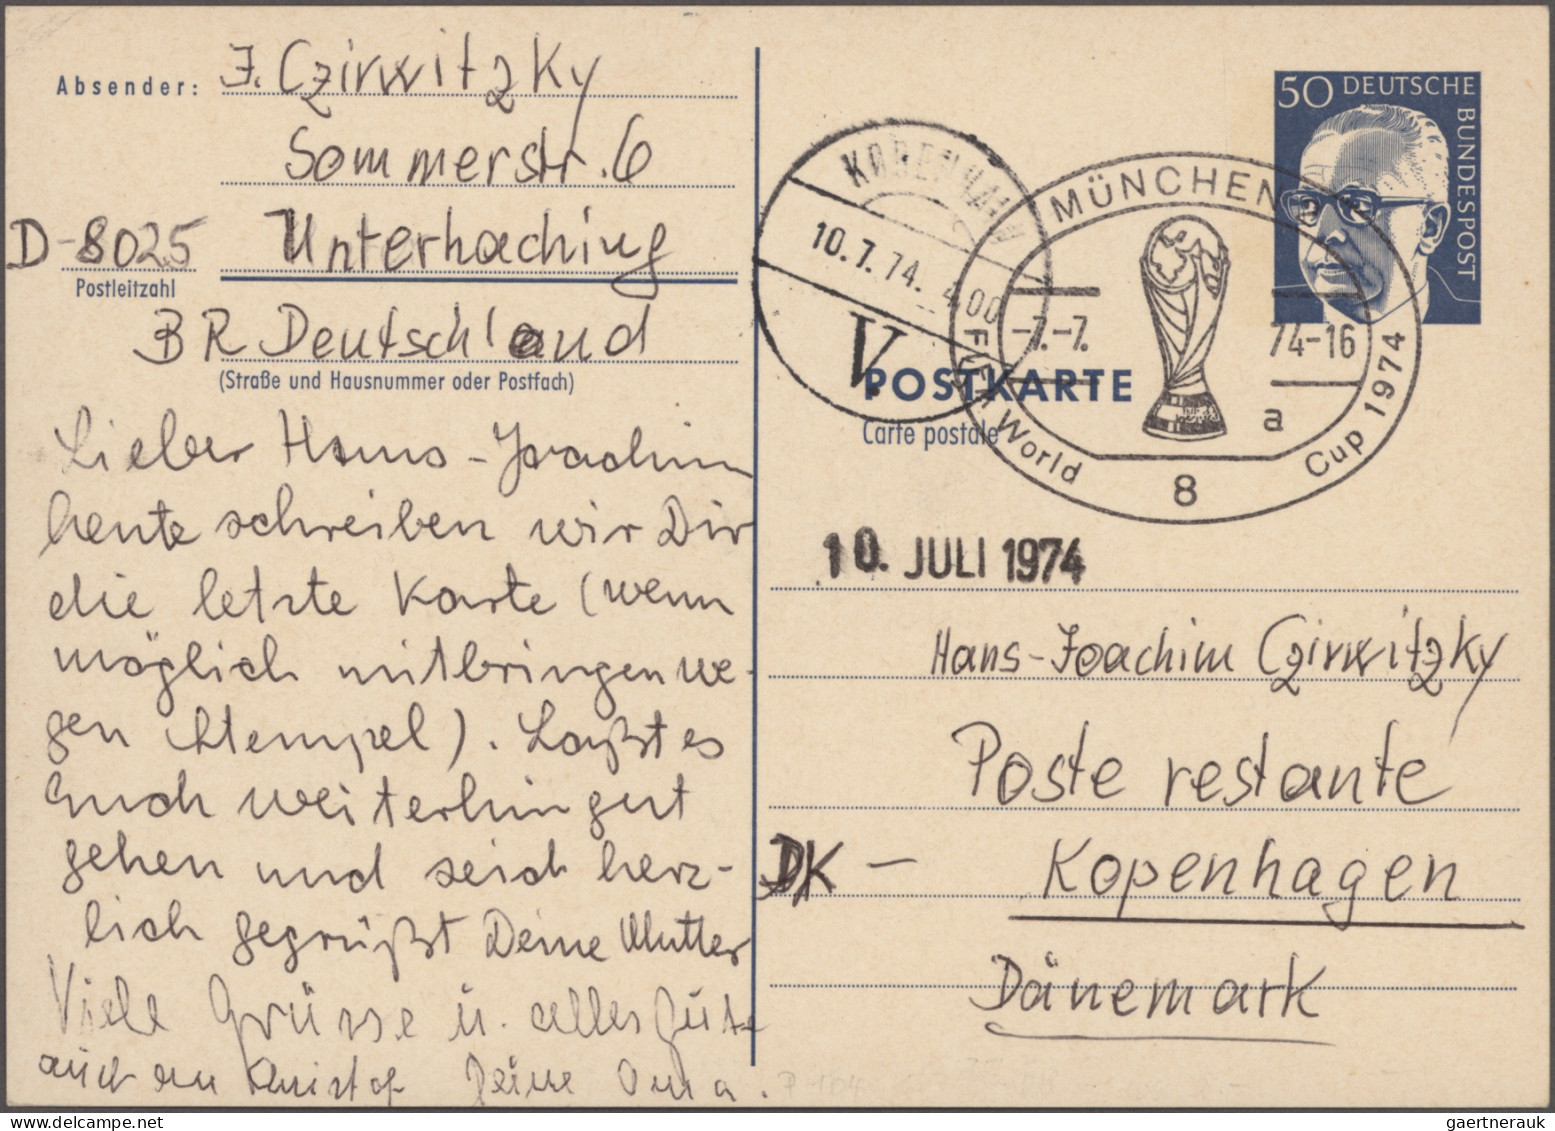 Absender: J. Czirwitzky
Sommerstr. 6
D-8025 Unterhaching
Postleitzahl
BR Deutschland
(Straße und Hausnummer oder Postfach)
Lieber Hans-Joachim
heute schreiben wir Dir
die letzte Karte (wenn
möglich mitbringen we-
gen Stempel). Laßt es
Euch weiterhin gut
gehen und seid herz-
lich gegrüßt Deine Mutter
Viele Grüsse u. alles Gute
auch an Kristof Deine Oma.
50 DEUTSCHE
BUNDESPOST
KØBENHAVN
2
10.7.74. 400
V.
MÜNCHEN
-7.-7. 74-16
a
8
FIFA World Cup 1974
POSTKARTE
Carte postale
10. JULI 1974
Hans-Joachim Czirwitzky
Poste restante
DK - Kopenhagen
Dänemark
gaertnerauk